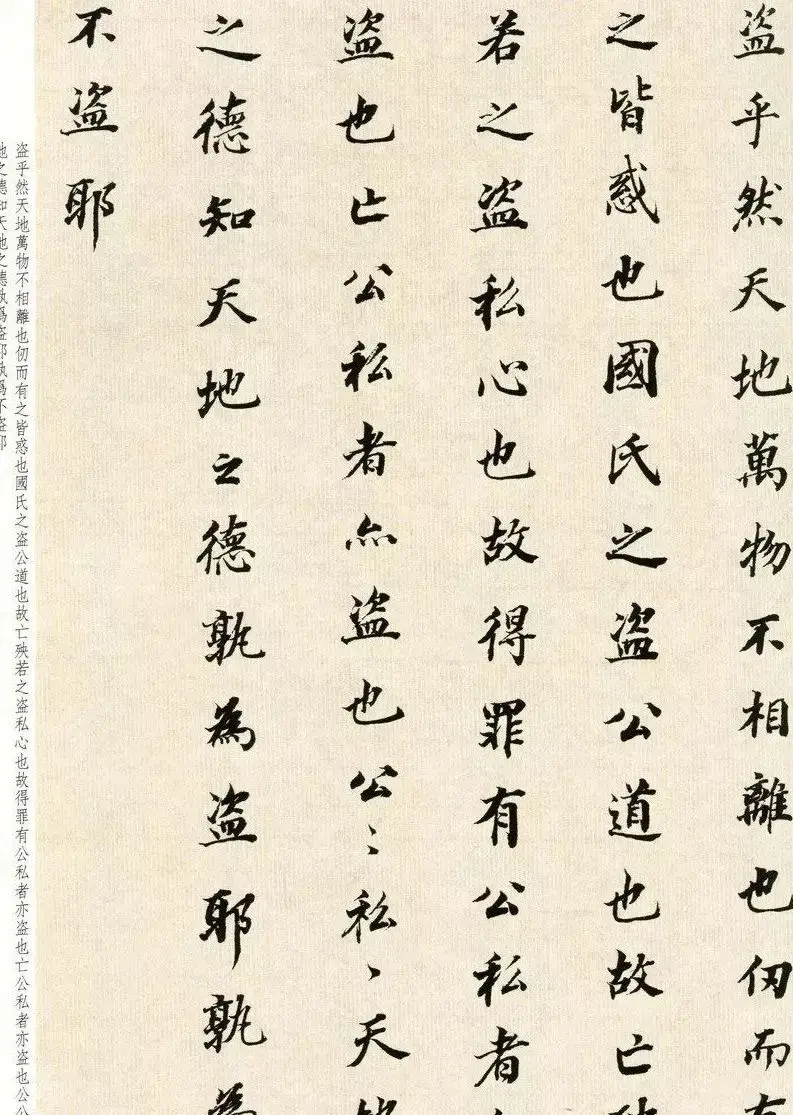 盜乎然天地萬物不相離也仞而有
之皆惑也國氏之盜公道也故亡殃
若之盜私心也故得罪有公私者亦
盜也亡公私者亦盜也公〻私〻天地
之德知天地之德孰為盜耶孰為
不盜耶
盜乎然天地萬物不相離也仞而有之皆惑也國氏之盜公道也故亡殃若之盜私心也故得罪有公私者亦盜也亡公私者亦盜也公公
地之德知天地之德孰爲盜耶孰爲不盜耶